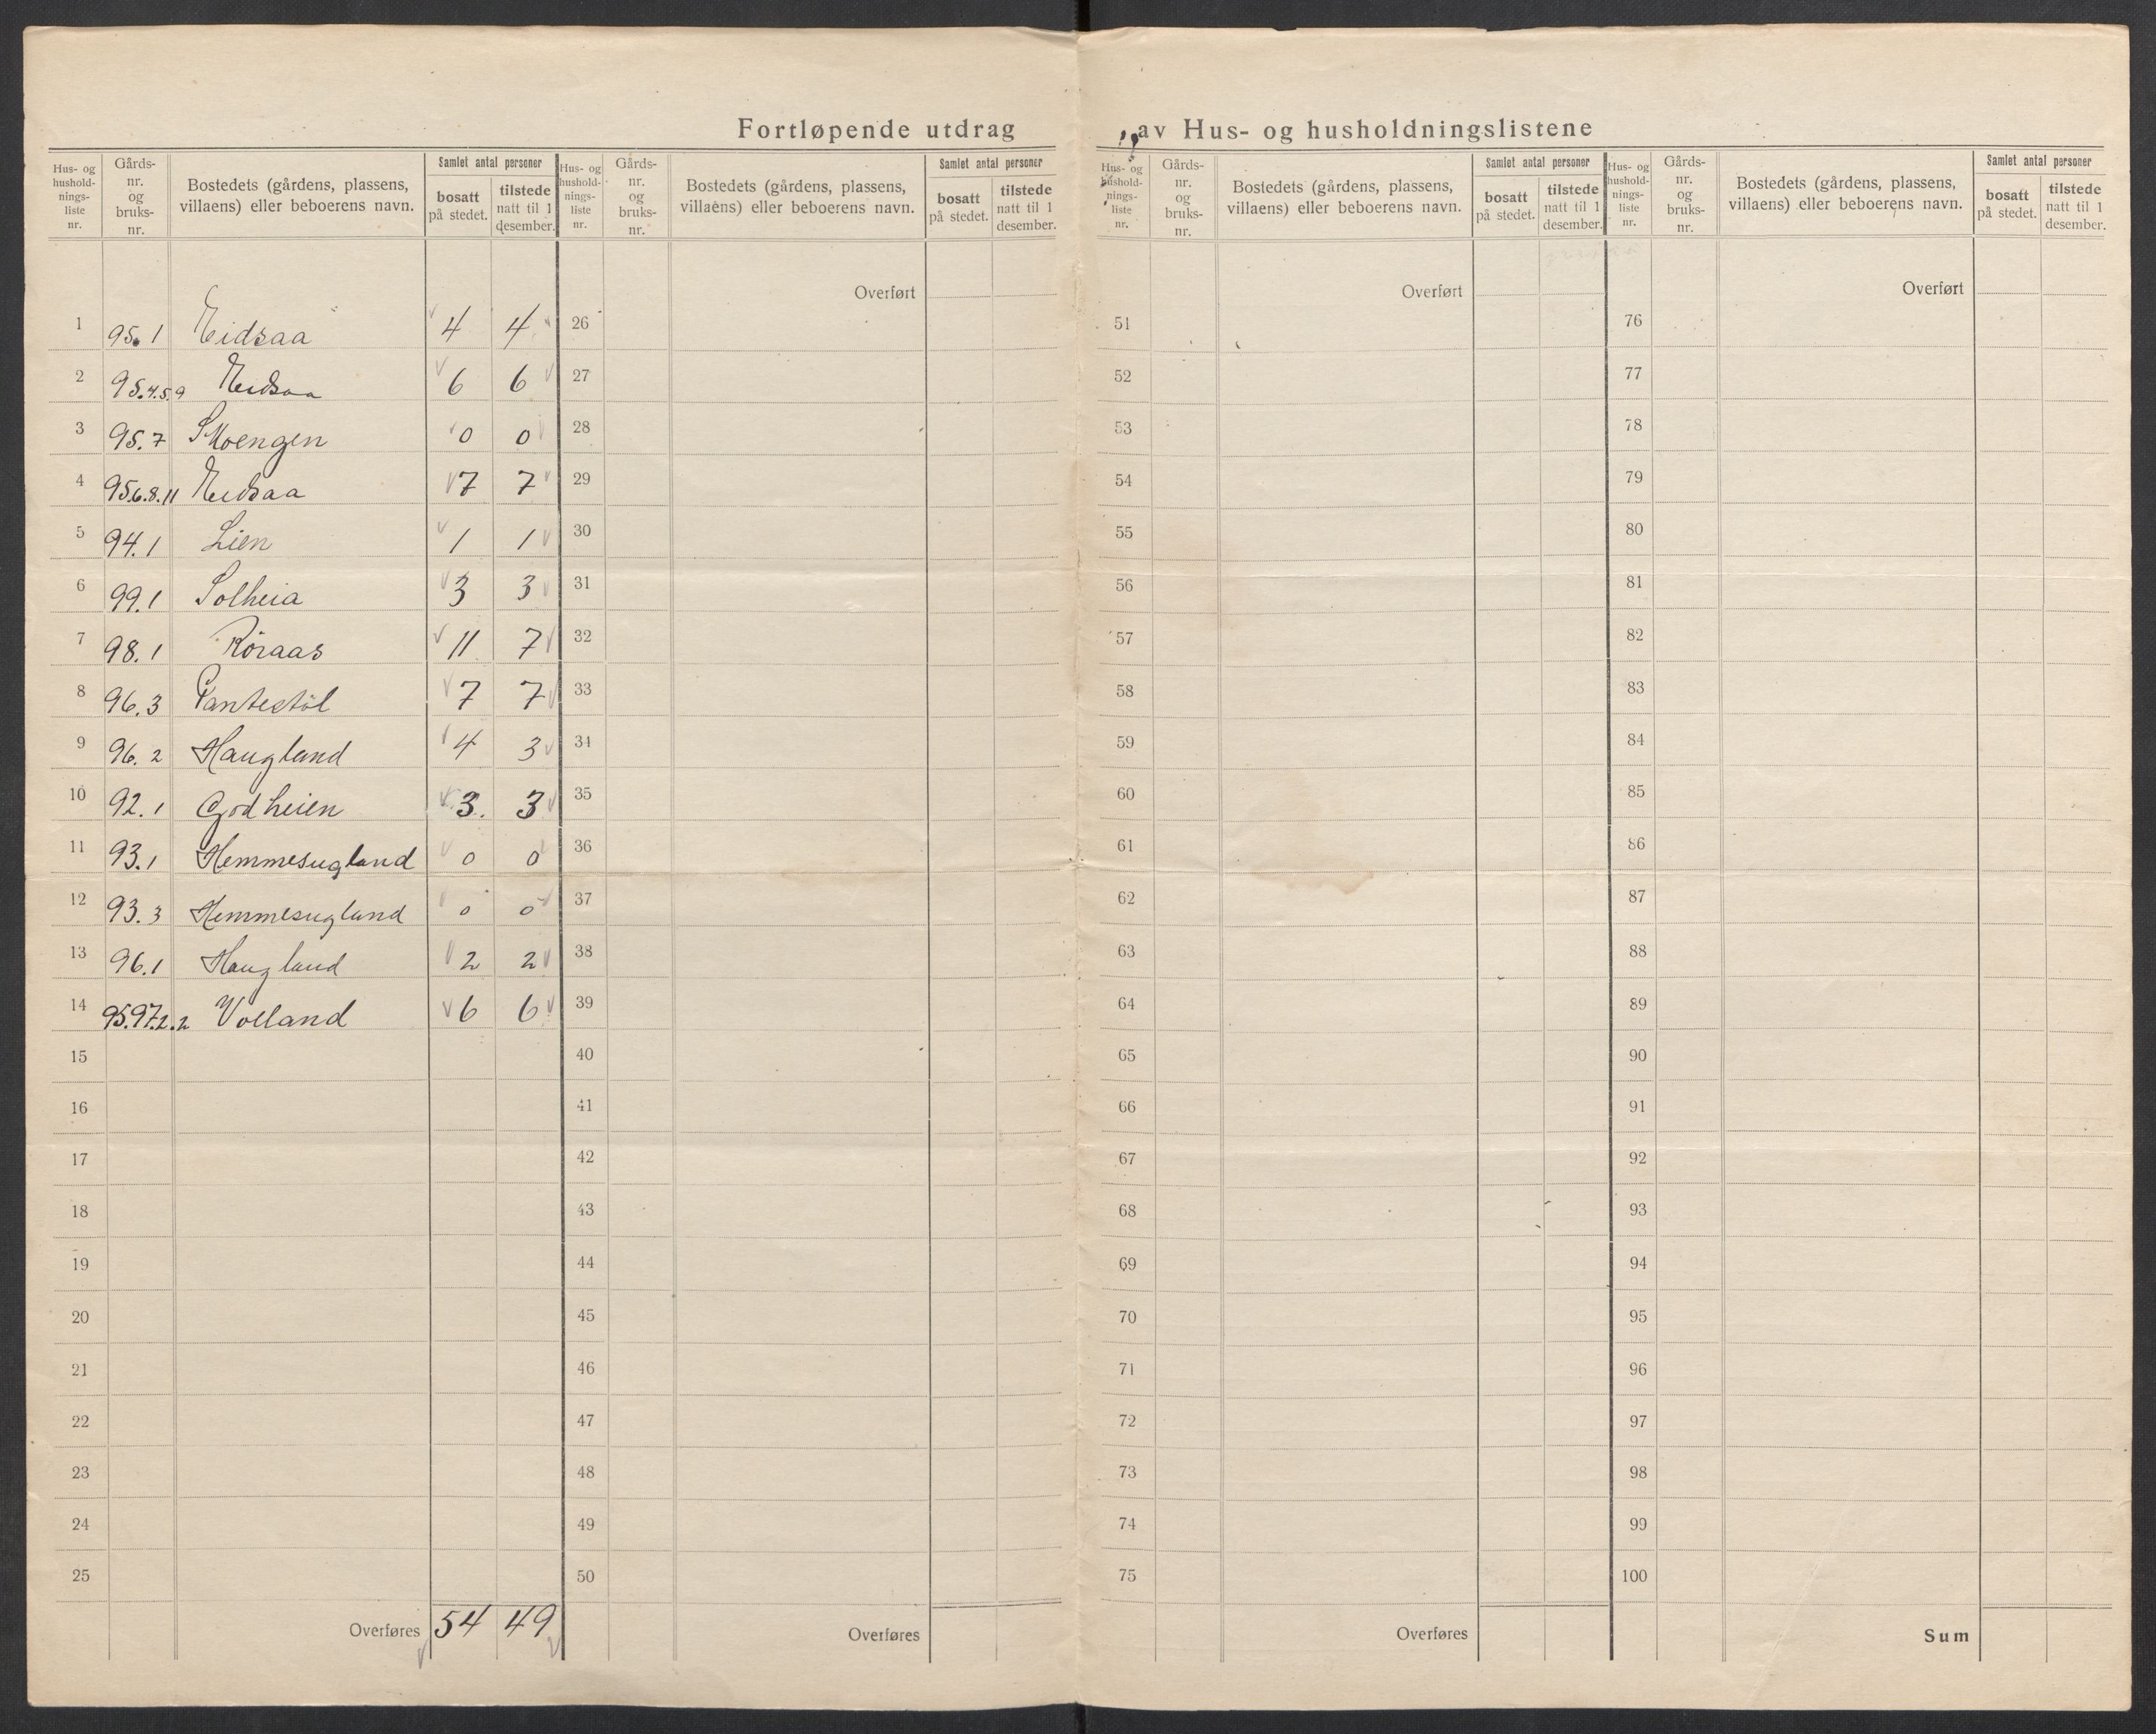 Fortløpende utdrag av Hus- og husholdningslistene
Hus- og hushold-nings-liste nr. Gårds-nr. og bruks-nr. Bostedets (gårdens, plassens, villaens) eller beboerens navn. Samlet antal personer bosatt på stedet. tilstede natt til 1 desember.
Hus- og hushold-nings-liste nr. Gårds-nr. og bruks-nr. Bostedets (gårdens, plassens, villaens) eller beboerens navn. Samlet antal personer bosatt på stedet. tilstede natt til 1 desember.
Hus- og hushold-nings-liste nr. Gårds-nr. og bruks-nr. Bostedets (gårdens, plassens, villaens) eller beboerens navn. Samlet antal personer bosatt på stedet. tilstede natt til 1 desember.
Hus- og hushold-nings-liste nr. Gårds-nr. og bruks-nr. Bostedets (gårdens, plassens, villaens) eller beboerens navn. Samlet antal personer bosatt på stedet. tilstede natt til 1 desember.
Overført Overført Overført
1 95.1 Eidsaa 4 4 26 51 76
2 95.4.5.9 Eidsaa 6 6 27 52 77
3 95.7 Moengen 0 0 28 53 78
4 95.6.8.11 Eidsaa 7 7 29 54 79
5 94.1 Lien 1 1 30 55 80
6 99.1 Solheia 3 3 31 56 81
7 98.1 Röraas 11 7 32 57 82
8 96.3 Pantestöl 7 7 33 58 83
9 96.2 Haugland 4 3 34 59 84
10 92.1 Godheien 3 3 35 60 85
11 93.1 Hemmesugland 0 0 36 61 86
12 93.3 Hemmesugland 0 0 37 62 87
13 96.1 Haugland 2 2 38 63 88
14 95.97.2.2 Volland 6 6 39 64 89
15 40 65 90
16 41 66 91
17 42 67 92
18 43 68 93
19 44 69 94
20 45 70 95
21 46 71 96
22 47 72 97
23 48 73 98
24 49 74 99
25 50 75 100
Overføres 54 49 Overføres Overføres Sum